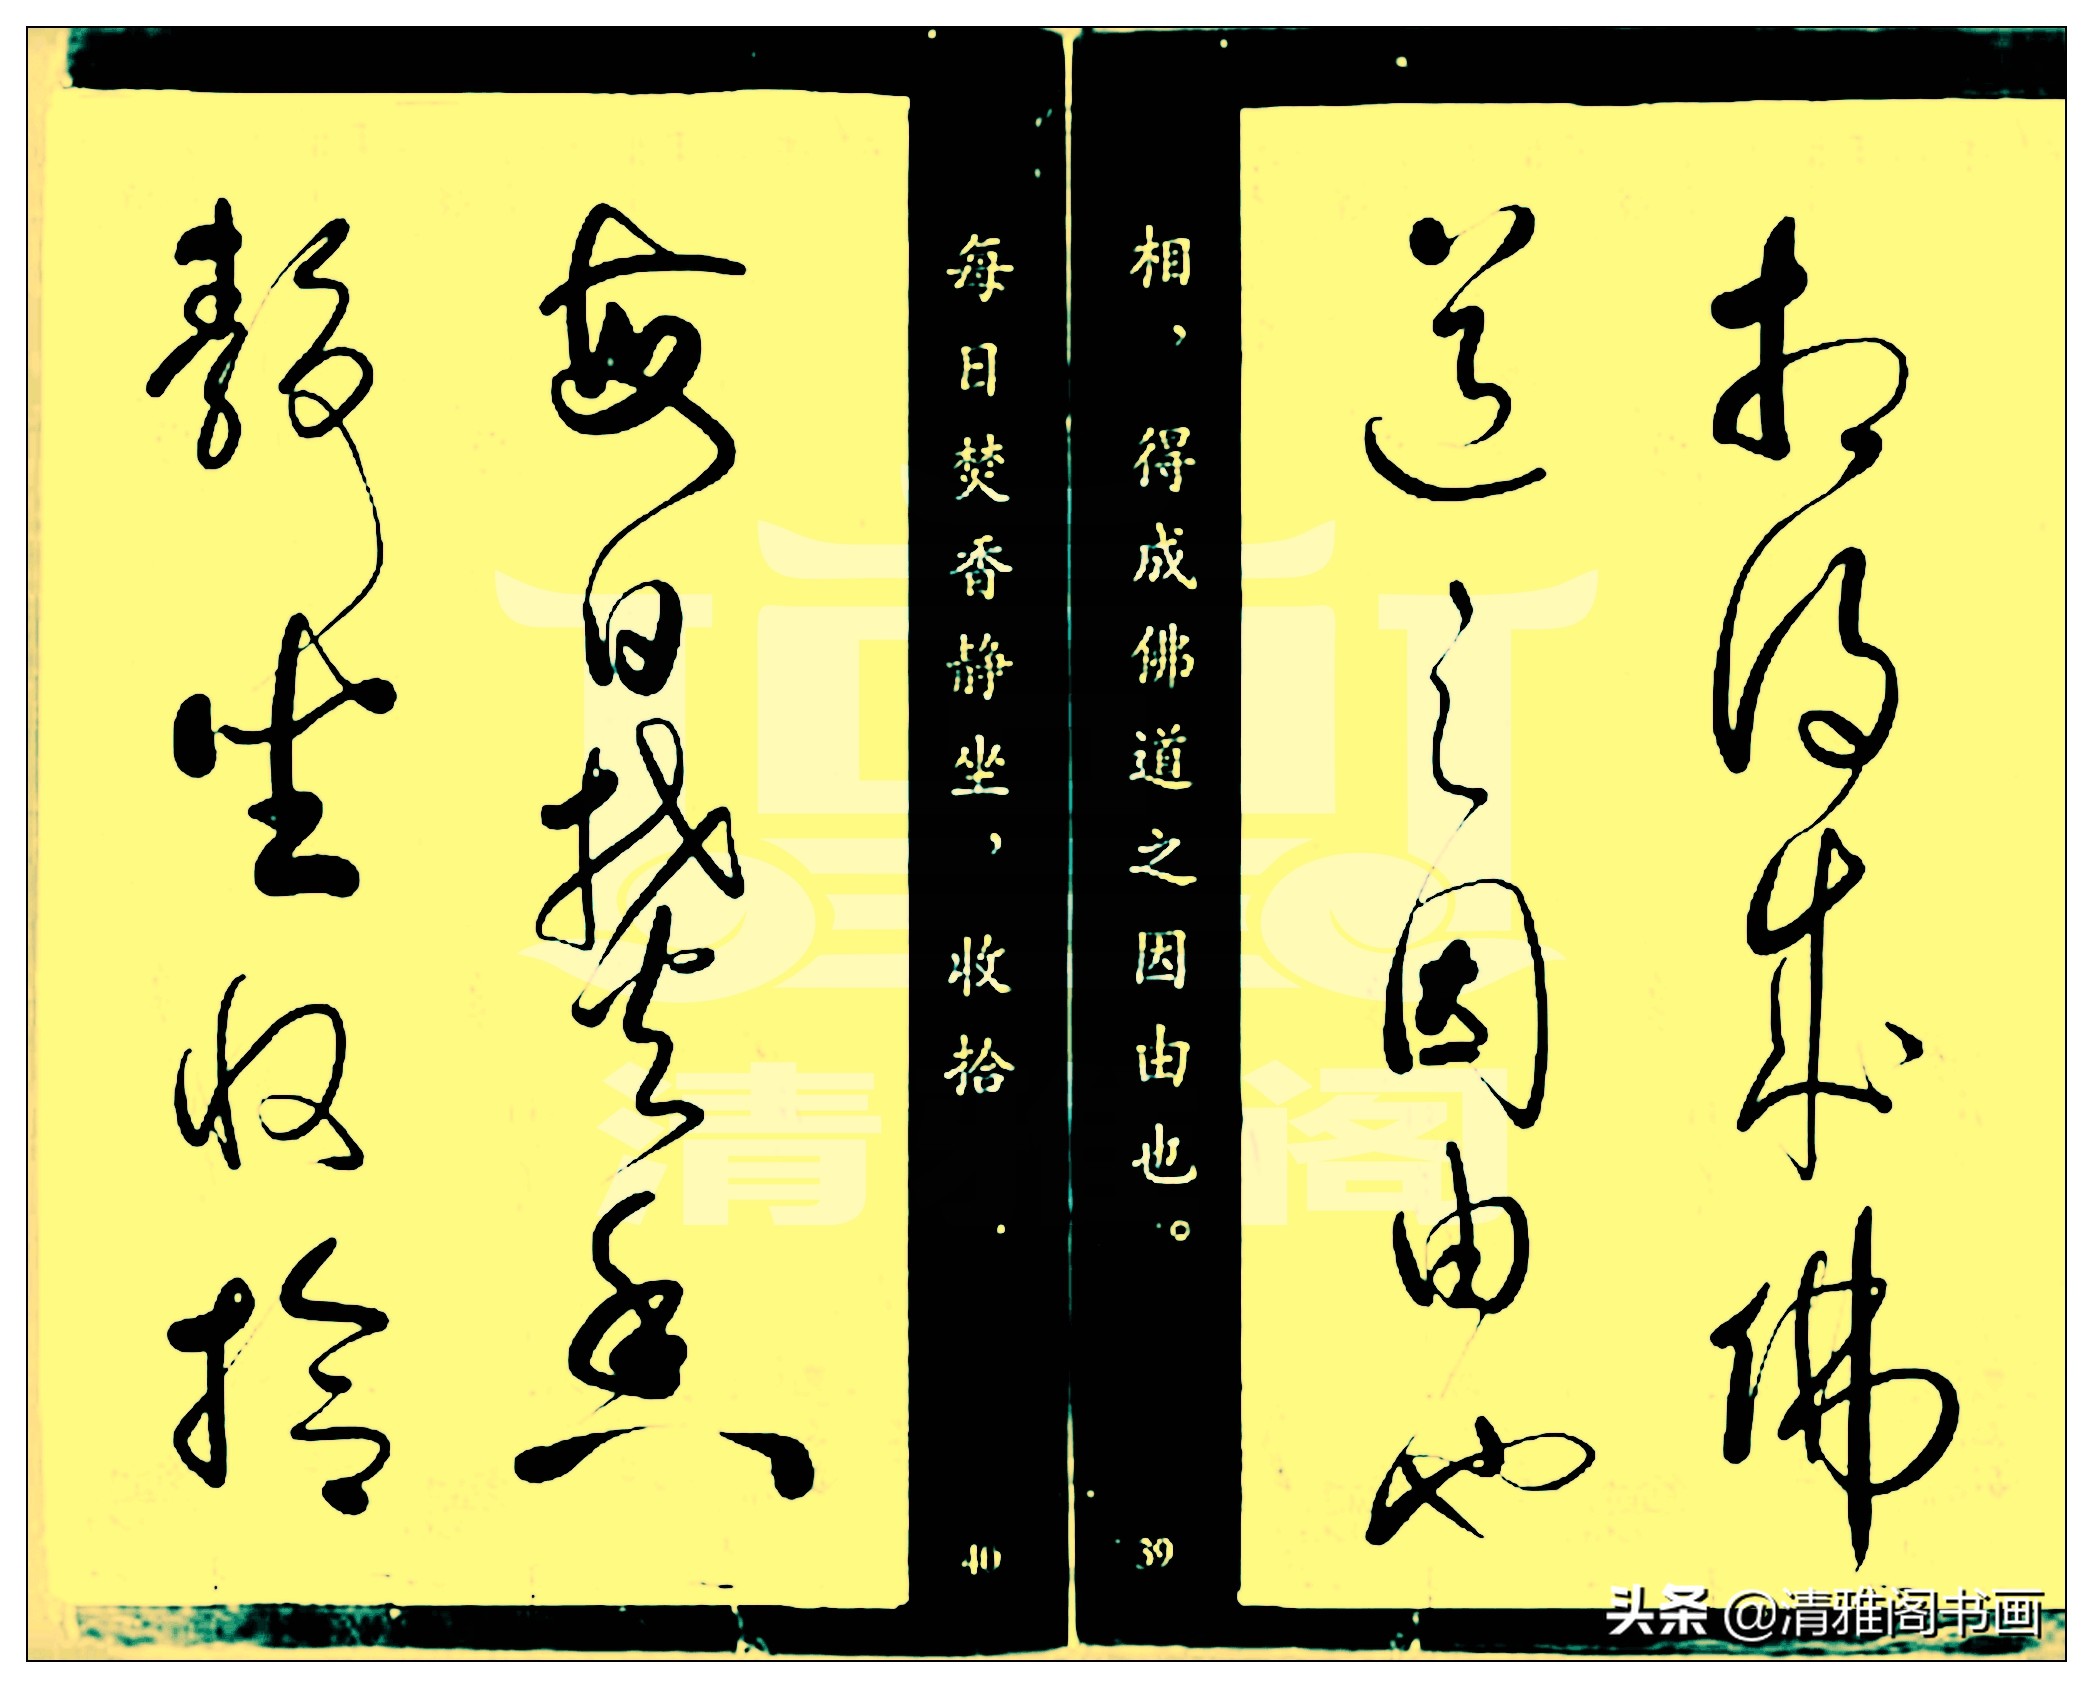 相得成佛
道之因由也
相，得成佛道之因由也。
39
每日焚香
静坐收拾
每日焚香静坐，收拾
40
清 阁
头条 @清雅阁书画